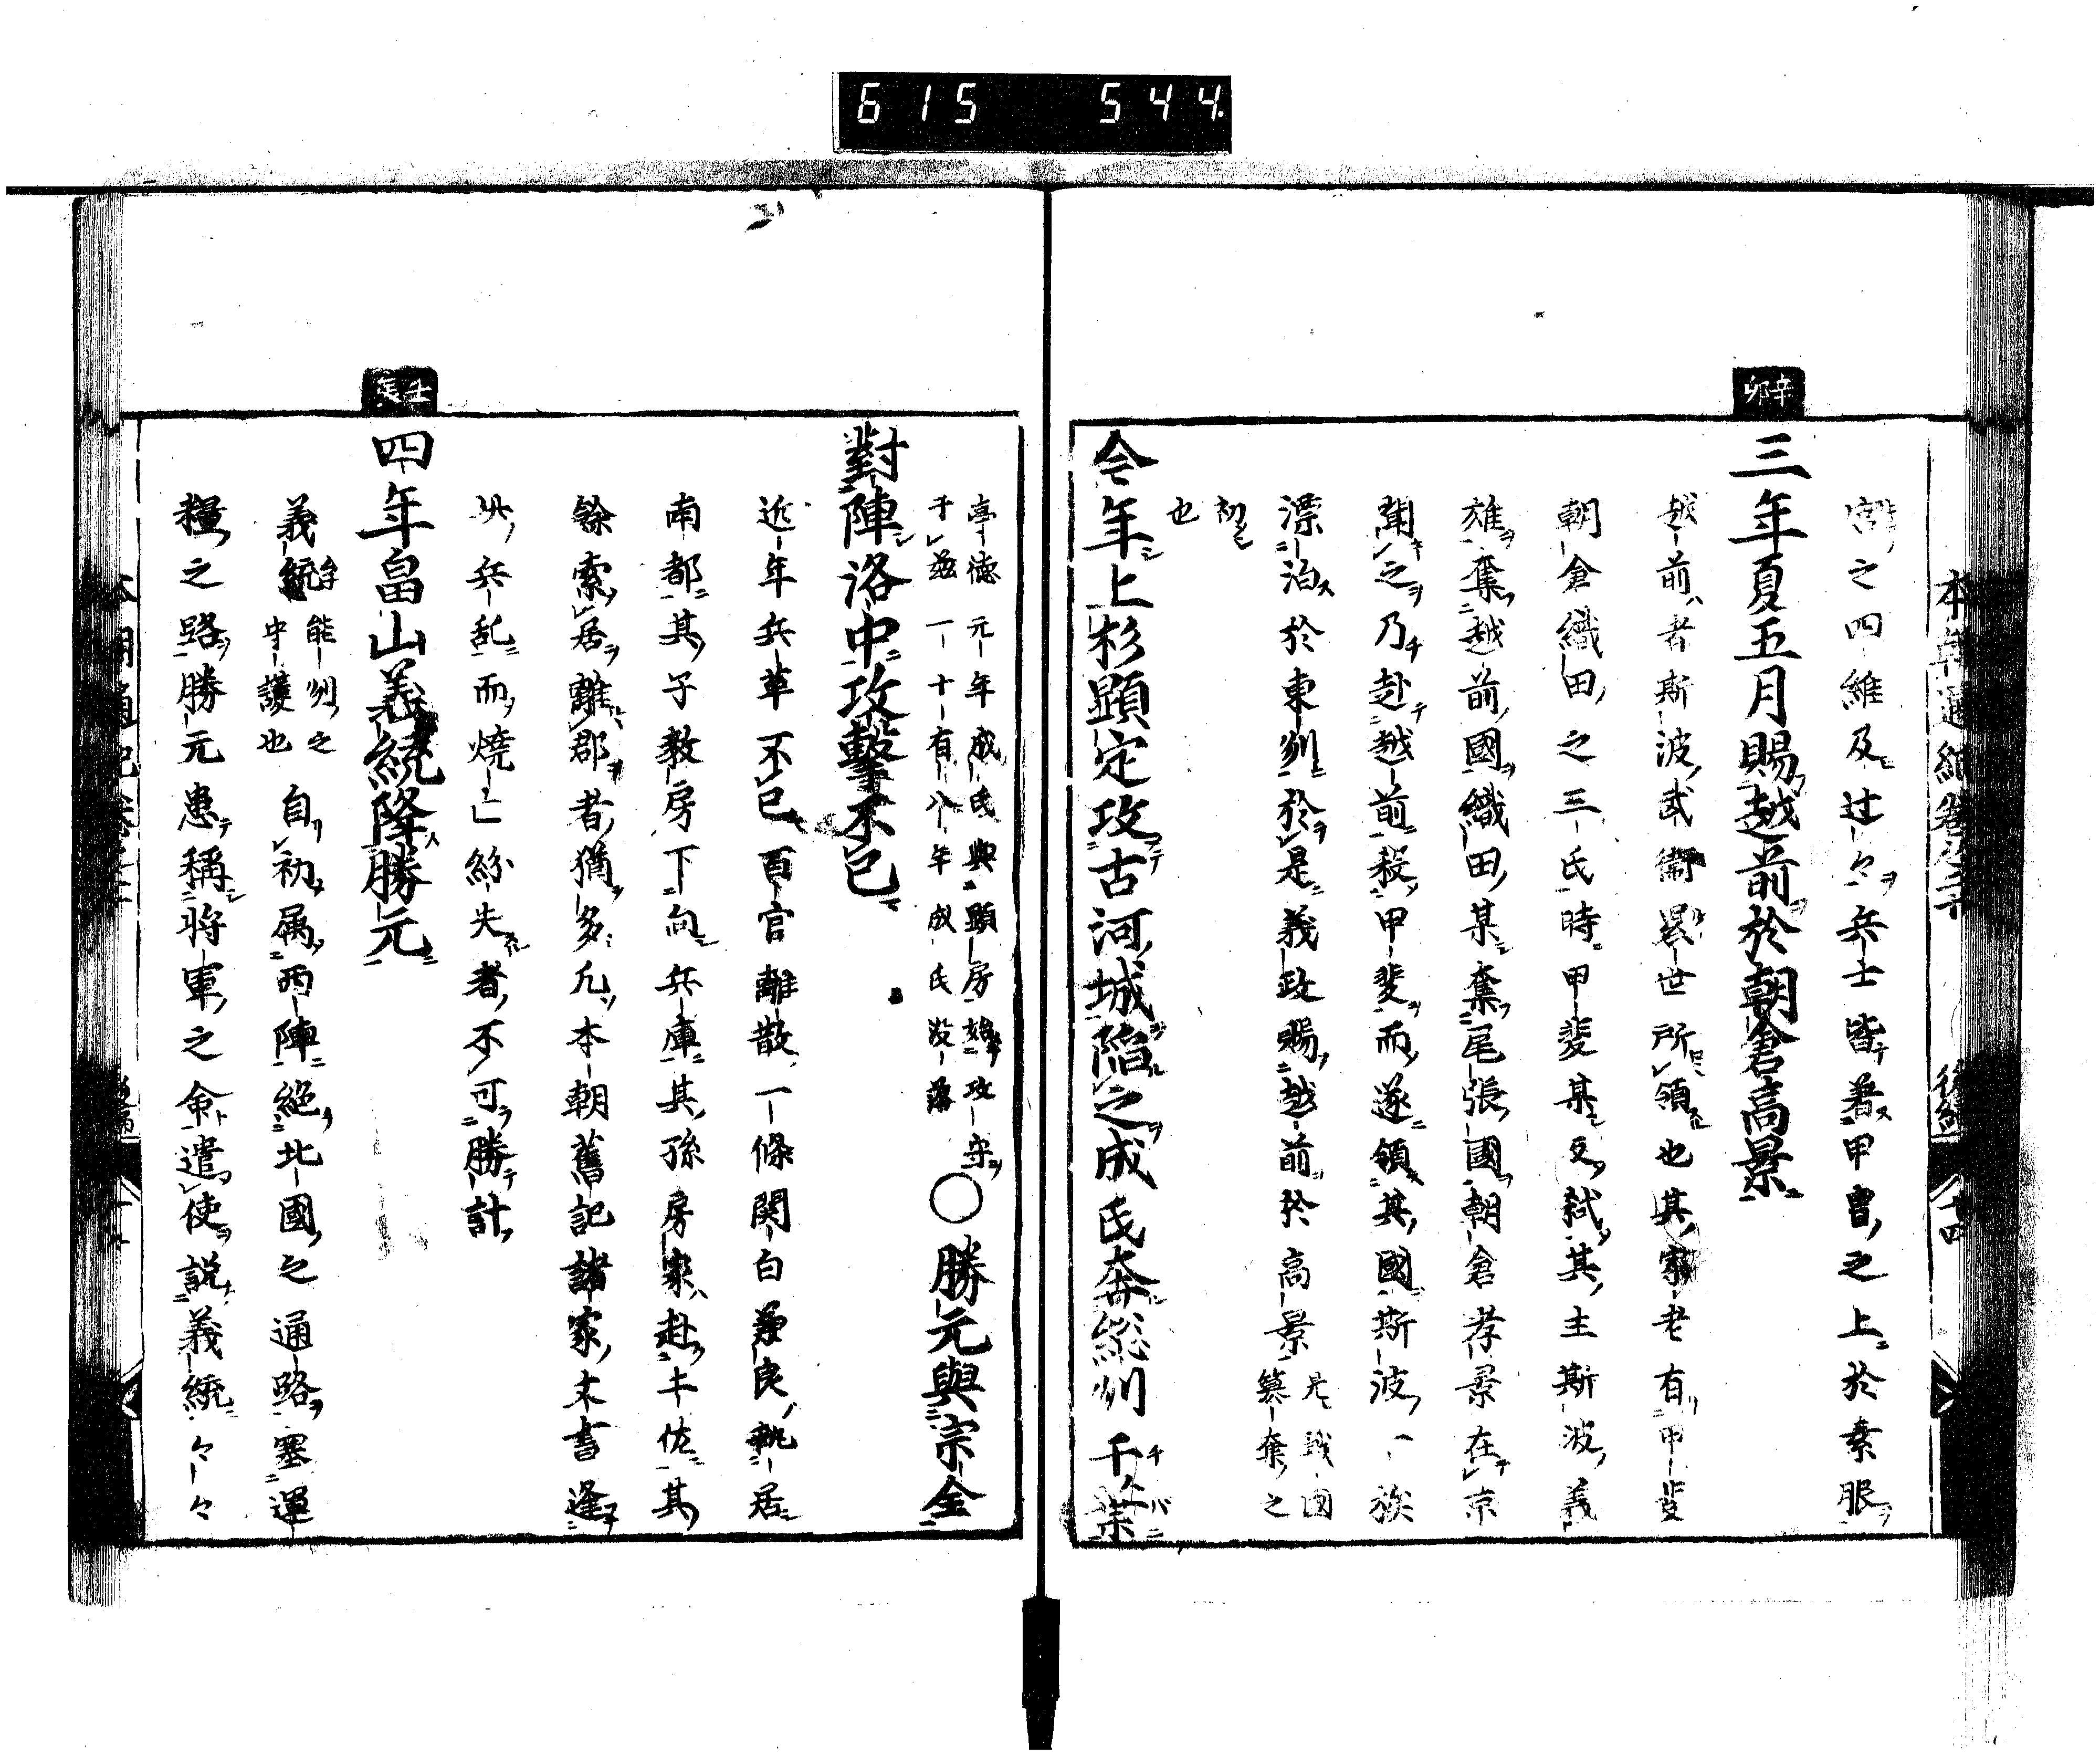 615 544
宮之四維及辻々兵士皆著甲冑之上於素服
辛卯
三年夏五月賜越前於朝倉高景
越前者斯波武衞累世所領也其家老有甲斐
朝倉織田之三氏時甲斐某弑其主斯波義
雄奪越前國織田某奪尾張國朝倉孝景在京
聞之乃赴越前殺甲斐而遂領其國斯波一族
漂泊於東州於是義政賜越前於高景是戰國簒奪之
初也
今年上杉顕定攻古河城陥之成氏奔総州千葉
亭德元年成氏與顕房始攻守
于茲一十有八年成氏没落
〇勝元與宗全
對陣洛中攻擊不已
近年兵革不已百官離散一條関白兼良執居
南都其子教房下向兵庫其孫房家赴土佐其
餘索居離郡者猶多凡本朝舊記諸家本書逢
此兵乱而燒亡紛失者不可勝計
壬辰
四年畠山義統降勝元
義統能州之守護也自初属西陣絕北國之通路塞運
糧之路勝元患稱將軍之命遣使説義統々々